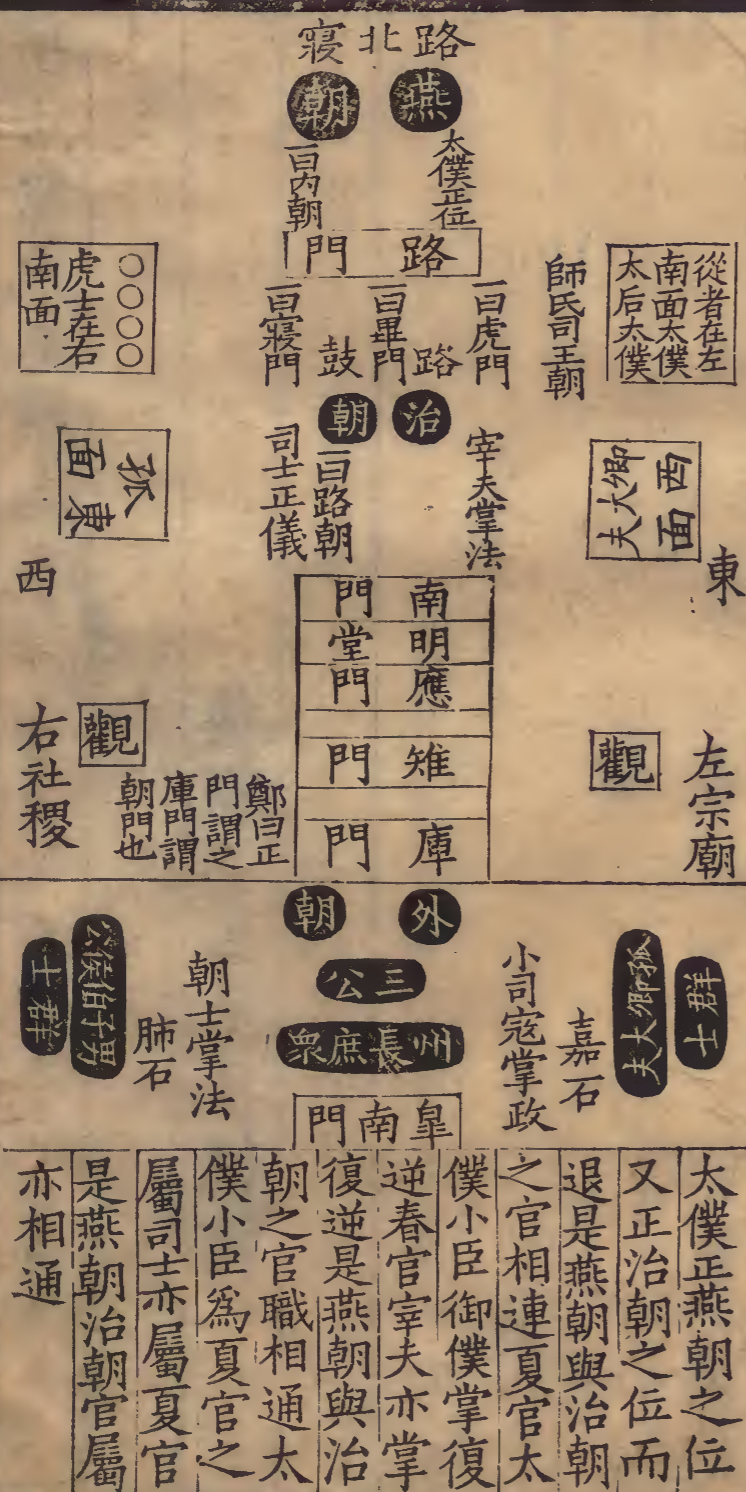 路北寢
燕朝
太僕正位
一曰內朝
路門
從者在左
南面太僕
太后太僕
師氏司王朝
一曰虎門
路
一曰畢門
鼓
一曰寢門
○○○○
虎士在右
南面
治朝
宰夫掌法
一曰路朝
司士正儀
西面
卿大夫
孤
東面
東
西
南門
明堂
應門
雉門
庫門
左宗廟
觀
觀
右社稷
鄭曰正
門謂之
庫門謂
朝門也
外朝
三公
州長庶衆
群士
孤卿大夫
嘉石
小司寇掌政
朝士掌法
肺石
公侯伯子男
群士
皐南門
太僕正燕朝之位
又正治朝之位而
退是燕朝與治朝
之官相連夏官太
僕小臣御僕掌復
逆春官宰夫亦掌
復逆是燕朝與治
朝之官職相通太
僕小臣爲夏官之
屬司士亦屬夏官
是燕朝治朝官屬
亦相通